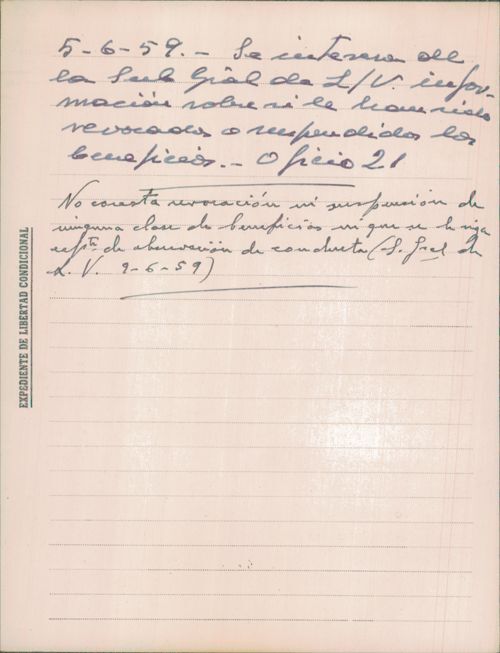 5-6-59.- Se interesa de
la Sub Gral de L/V. infor-
mación sobre si le han sido
revocados o suspendidos los
beneficios.- Oficio 21
No consta revocación ni suspensión de
ninguna clase de beneficios ni que se le siga
de observación de conducta (S. Gral de
L. V. 9-6-59)
EXPEDIENTE DE LIBERTAD CONDICIONAL